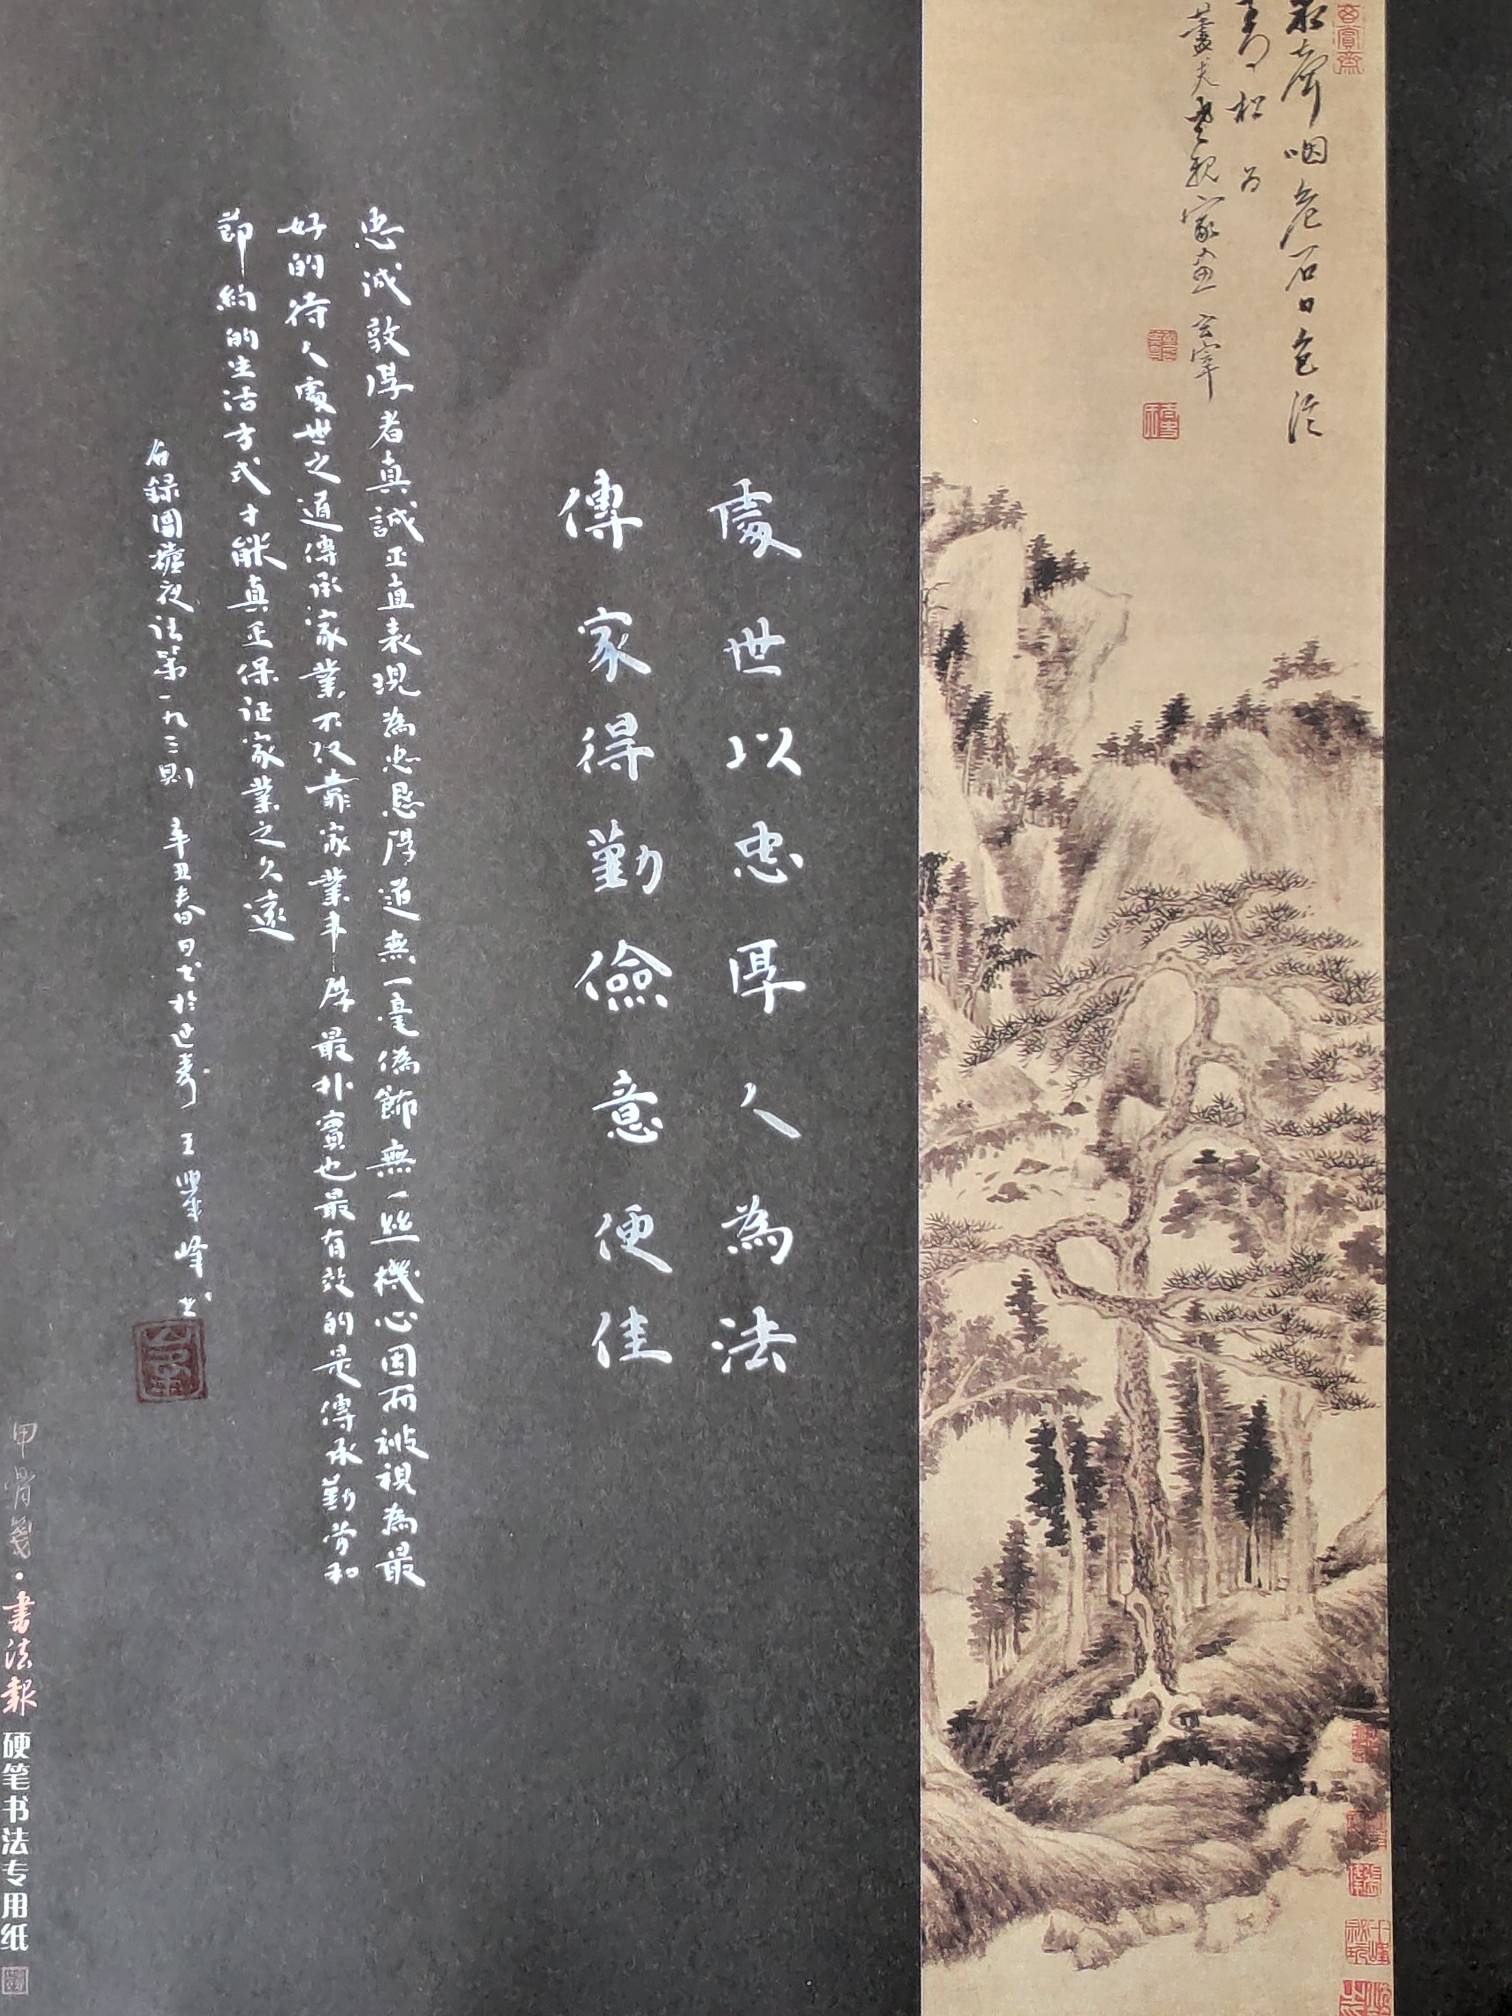 泉聲咽危石日色冷
青松 为
蓋夫老親家画 玄宰
處世以忠厚人為法
傳家得勤儉意便佳
忠誠敦厚者真誠正直表現為忠恳厚道無一毫偽飾無一丝機心因而被視為最
好的待人處世之道傳承家業不仅靠家業丰厚最朴實也最有效的是傳承勤劳和
節約的生活方式才能真正保证家業之久遠
右録圍爐夜话第一九三則 辛丑春日书於延寿 王 峰书
甲骨箋·書法報 硬笔书法专用纸